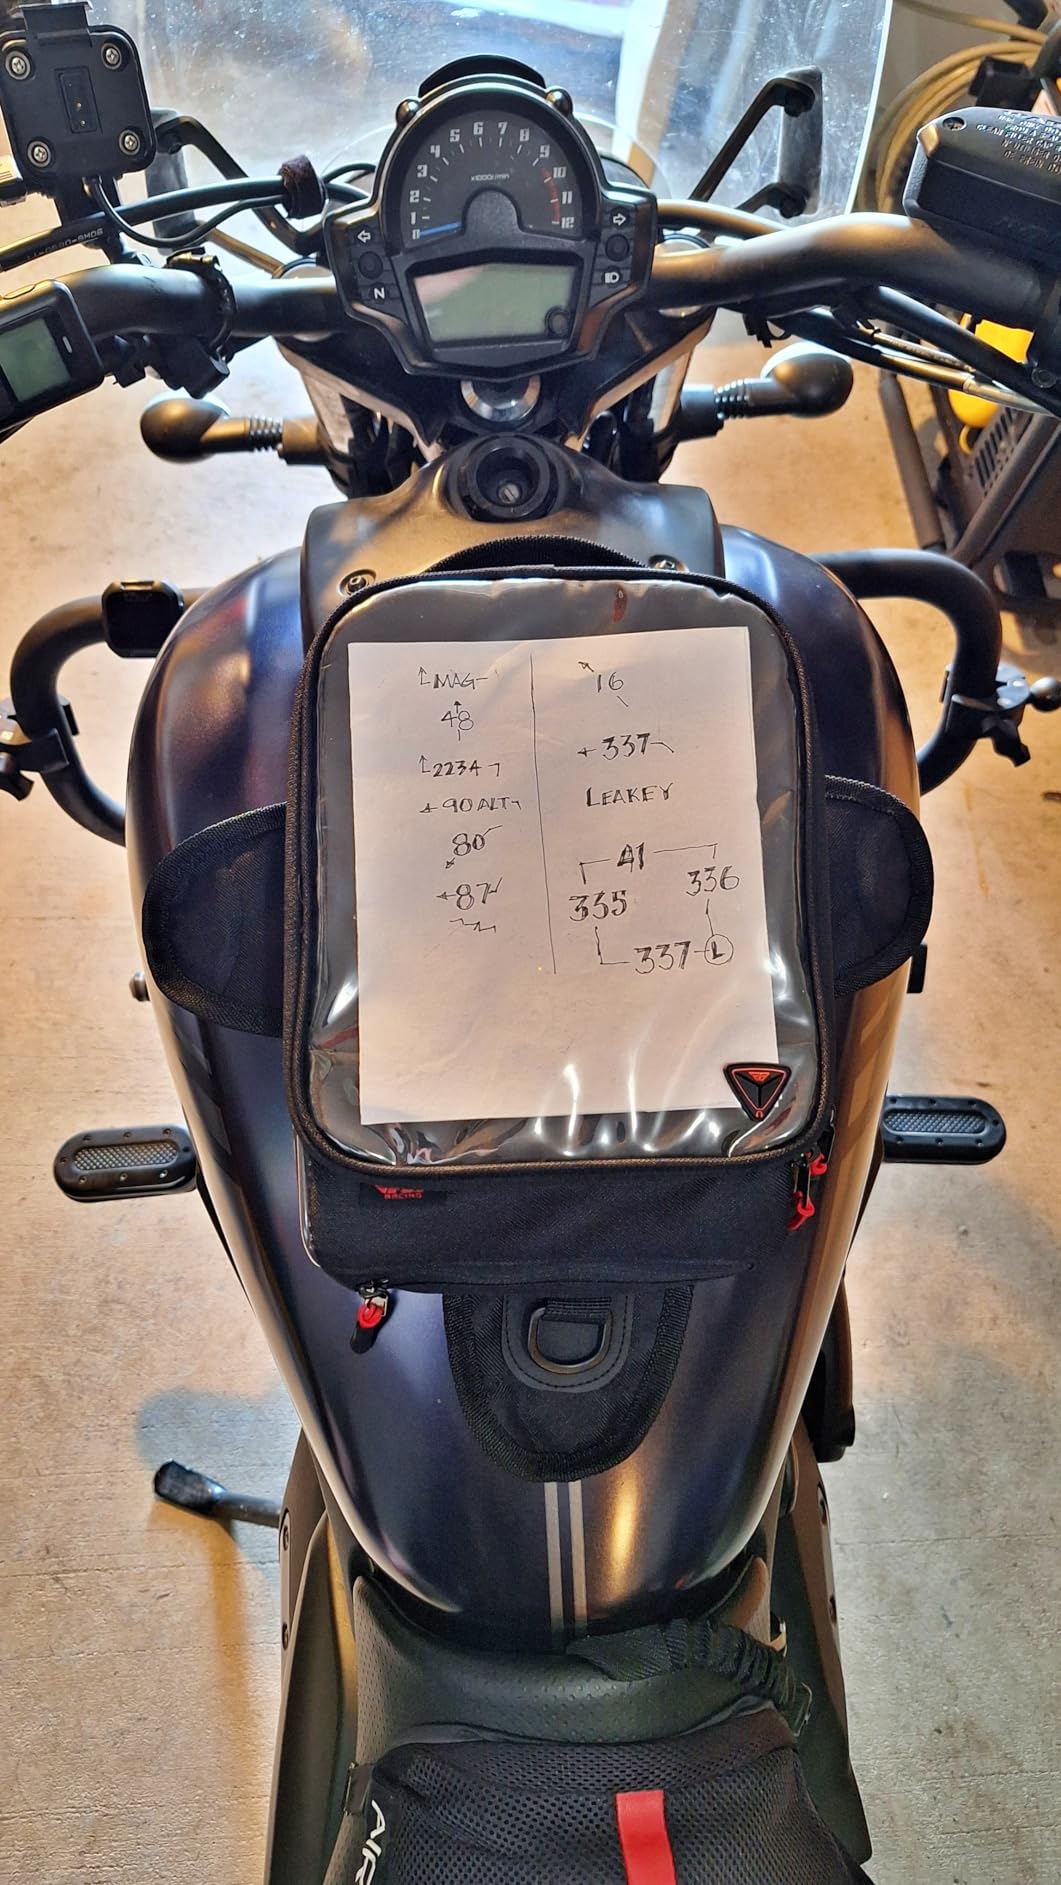 0 1 2 3 4 5 6 7 8 9 10 11 12
x1000r/min
N
MAG
48
2234
90 ALT
80
87
16
337
LEAKEY
41
335
336
337 L
RACING
AIR